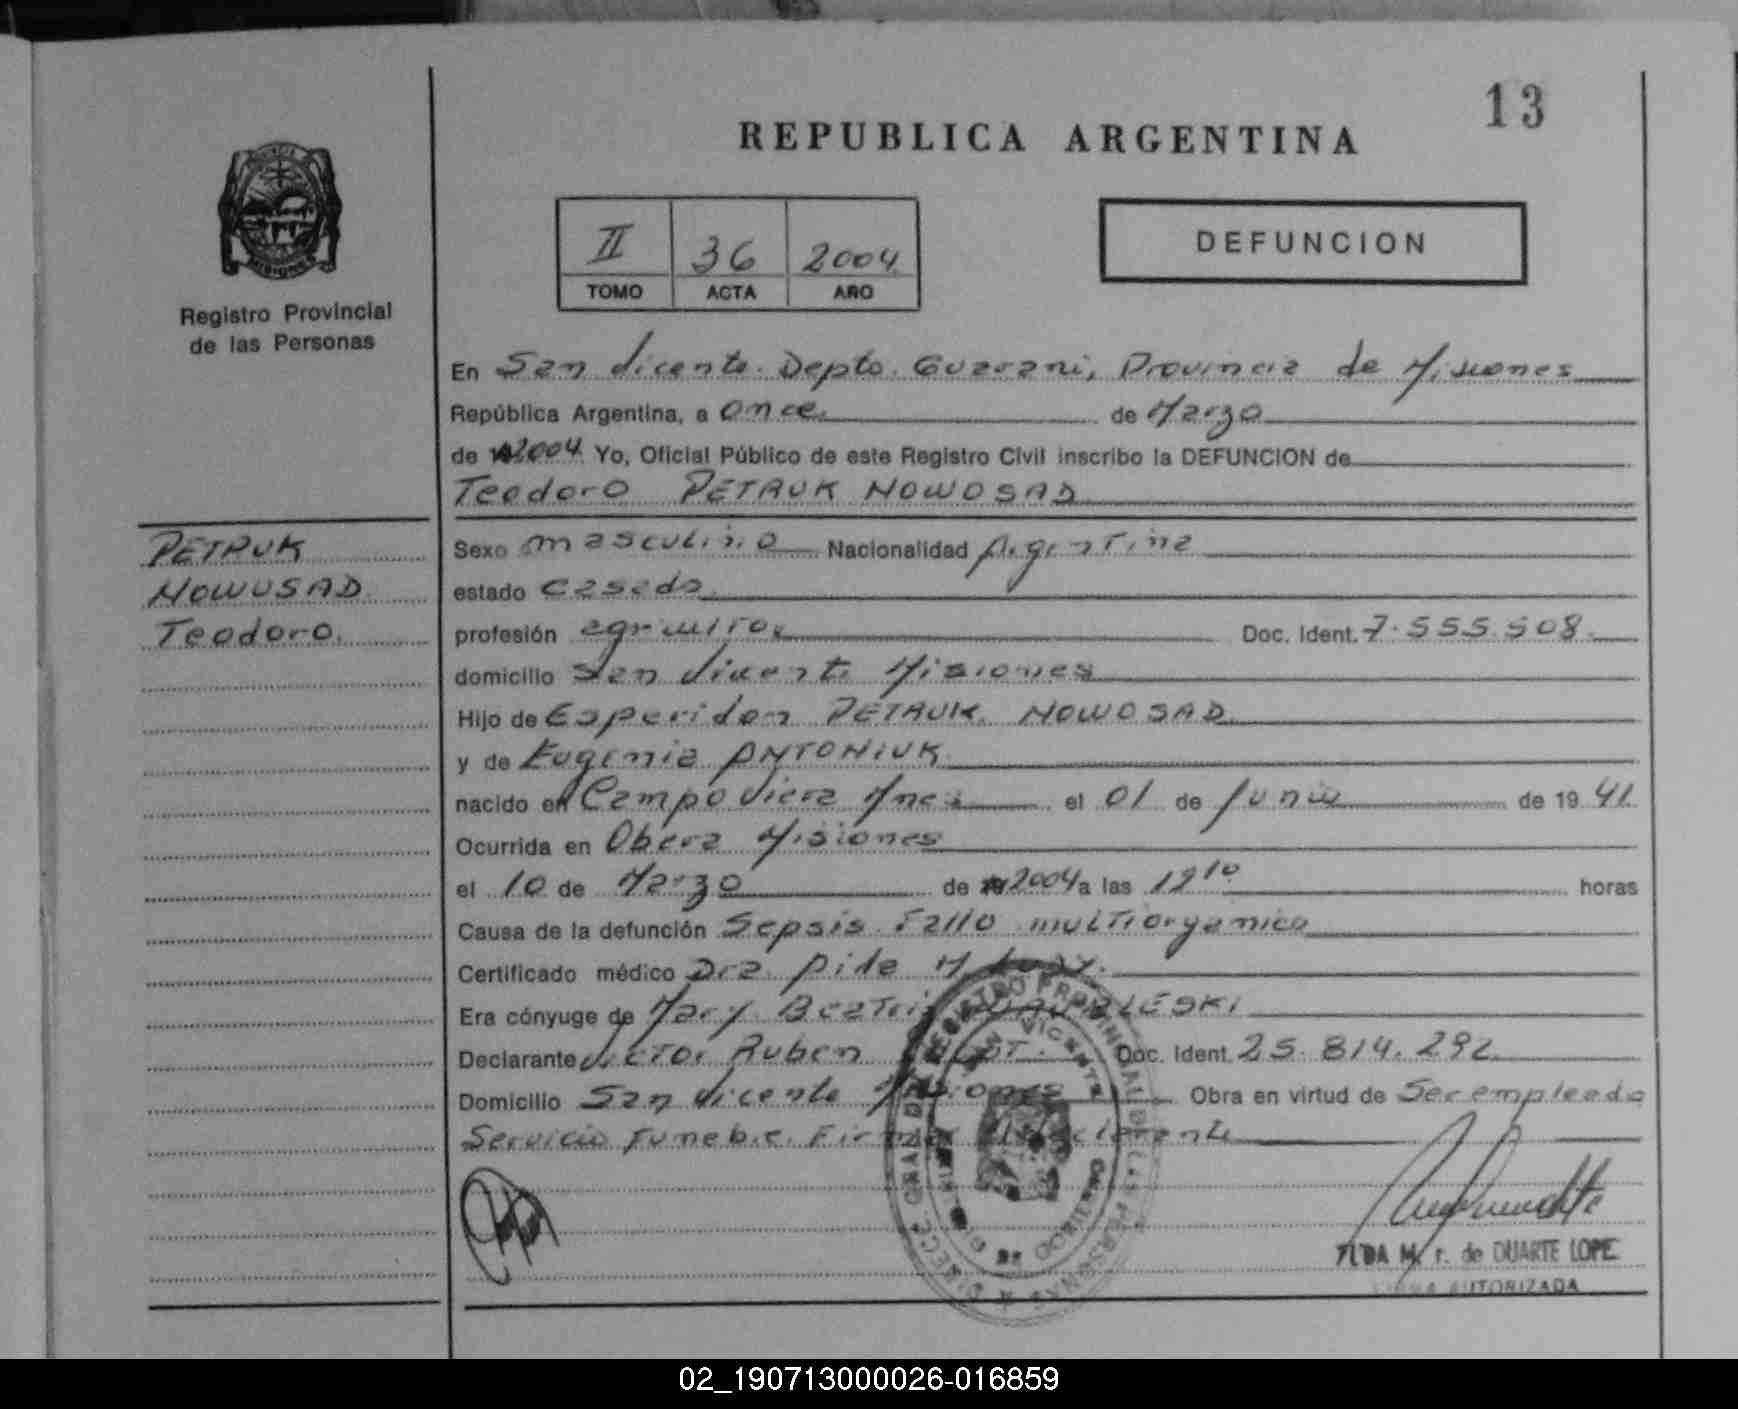 13
REPUBLICA ARGENTINA
PROVINCIA DE
MISIONES
Registro Provincial
de las Personas
II 36 2004
TOMO ACTA AÑO
DEFUNCION
En San Vicente. Depto. Guarani, Provincia de Misiones
República Argentina, a once. de Marzo
de 2004 Yo, Oficial Público de este Registro Civil inscribo la DEFUNCION de
Teodoro PETRUK NOWOSAD
PETRUK
NOWOSAD
Teodoro.
Sexo masculino Nacionalidad Argentina
estado Casado
profesión agricultor Doc. Ident. 7.555.508.
domicilio San Vicente Misiones
Hijo de Esperidon PETRUK NOWOSAD
y de Eugenia ANTONIUK
nacido en Campo Viera Mnes el 01 de Junio de 19 41.
Ocurrida en Obera Misiones
el 10 de Marzo de 2004 a las 12 10 horas
Causa de la defunción Sepsis Fallo multiorganico
Certificado médico Dra. Pide M.
Era cónyuge de Mary Beatriz
Declarante Victor Ruben Doc. Ident. 25.814.292
Domicilio San Vicente Misiones Obra en virtud de Ser empleado
Servicio Funebre. Firma el declarante
DIRECC. GRAL. DEL REGISTRO PROVINCIAL DE LAS PERSONAS
SAN VICENTE
M. r. de DUARTE LOPE
FIRMA AUTORIZADA
02_190713000026-016859